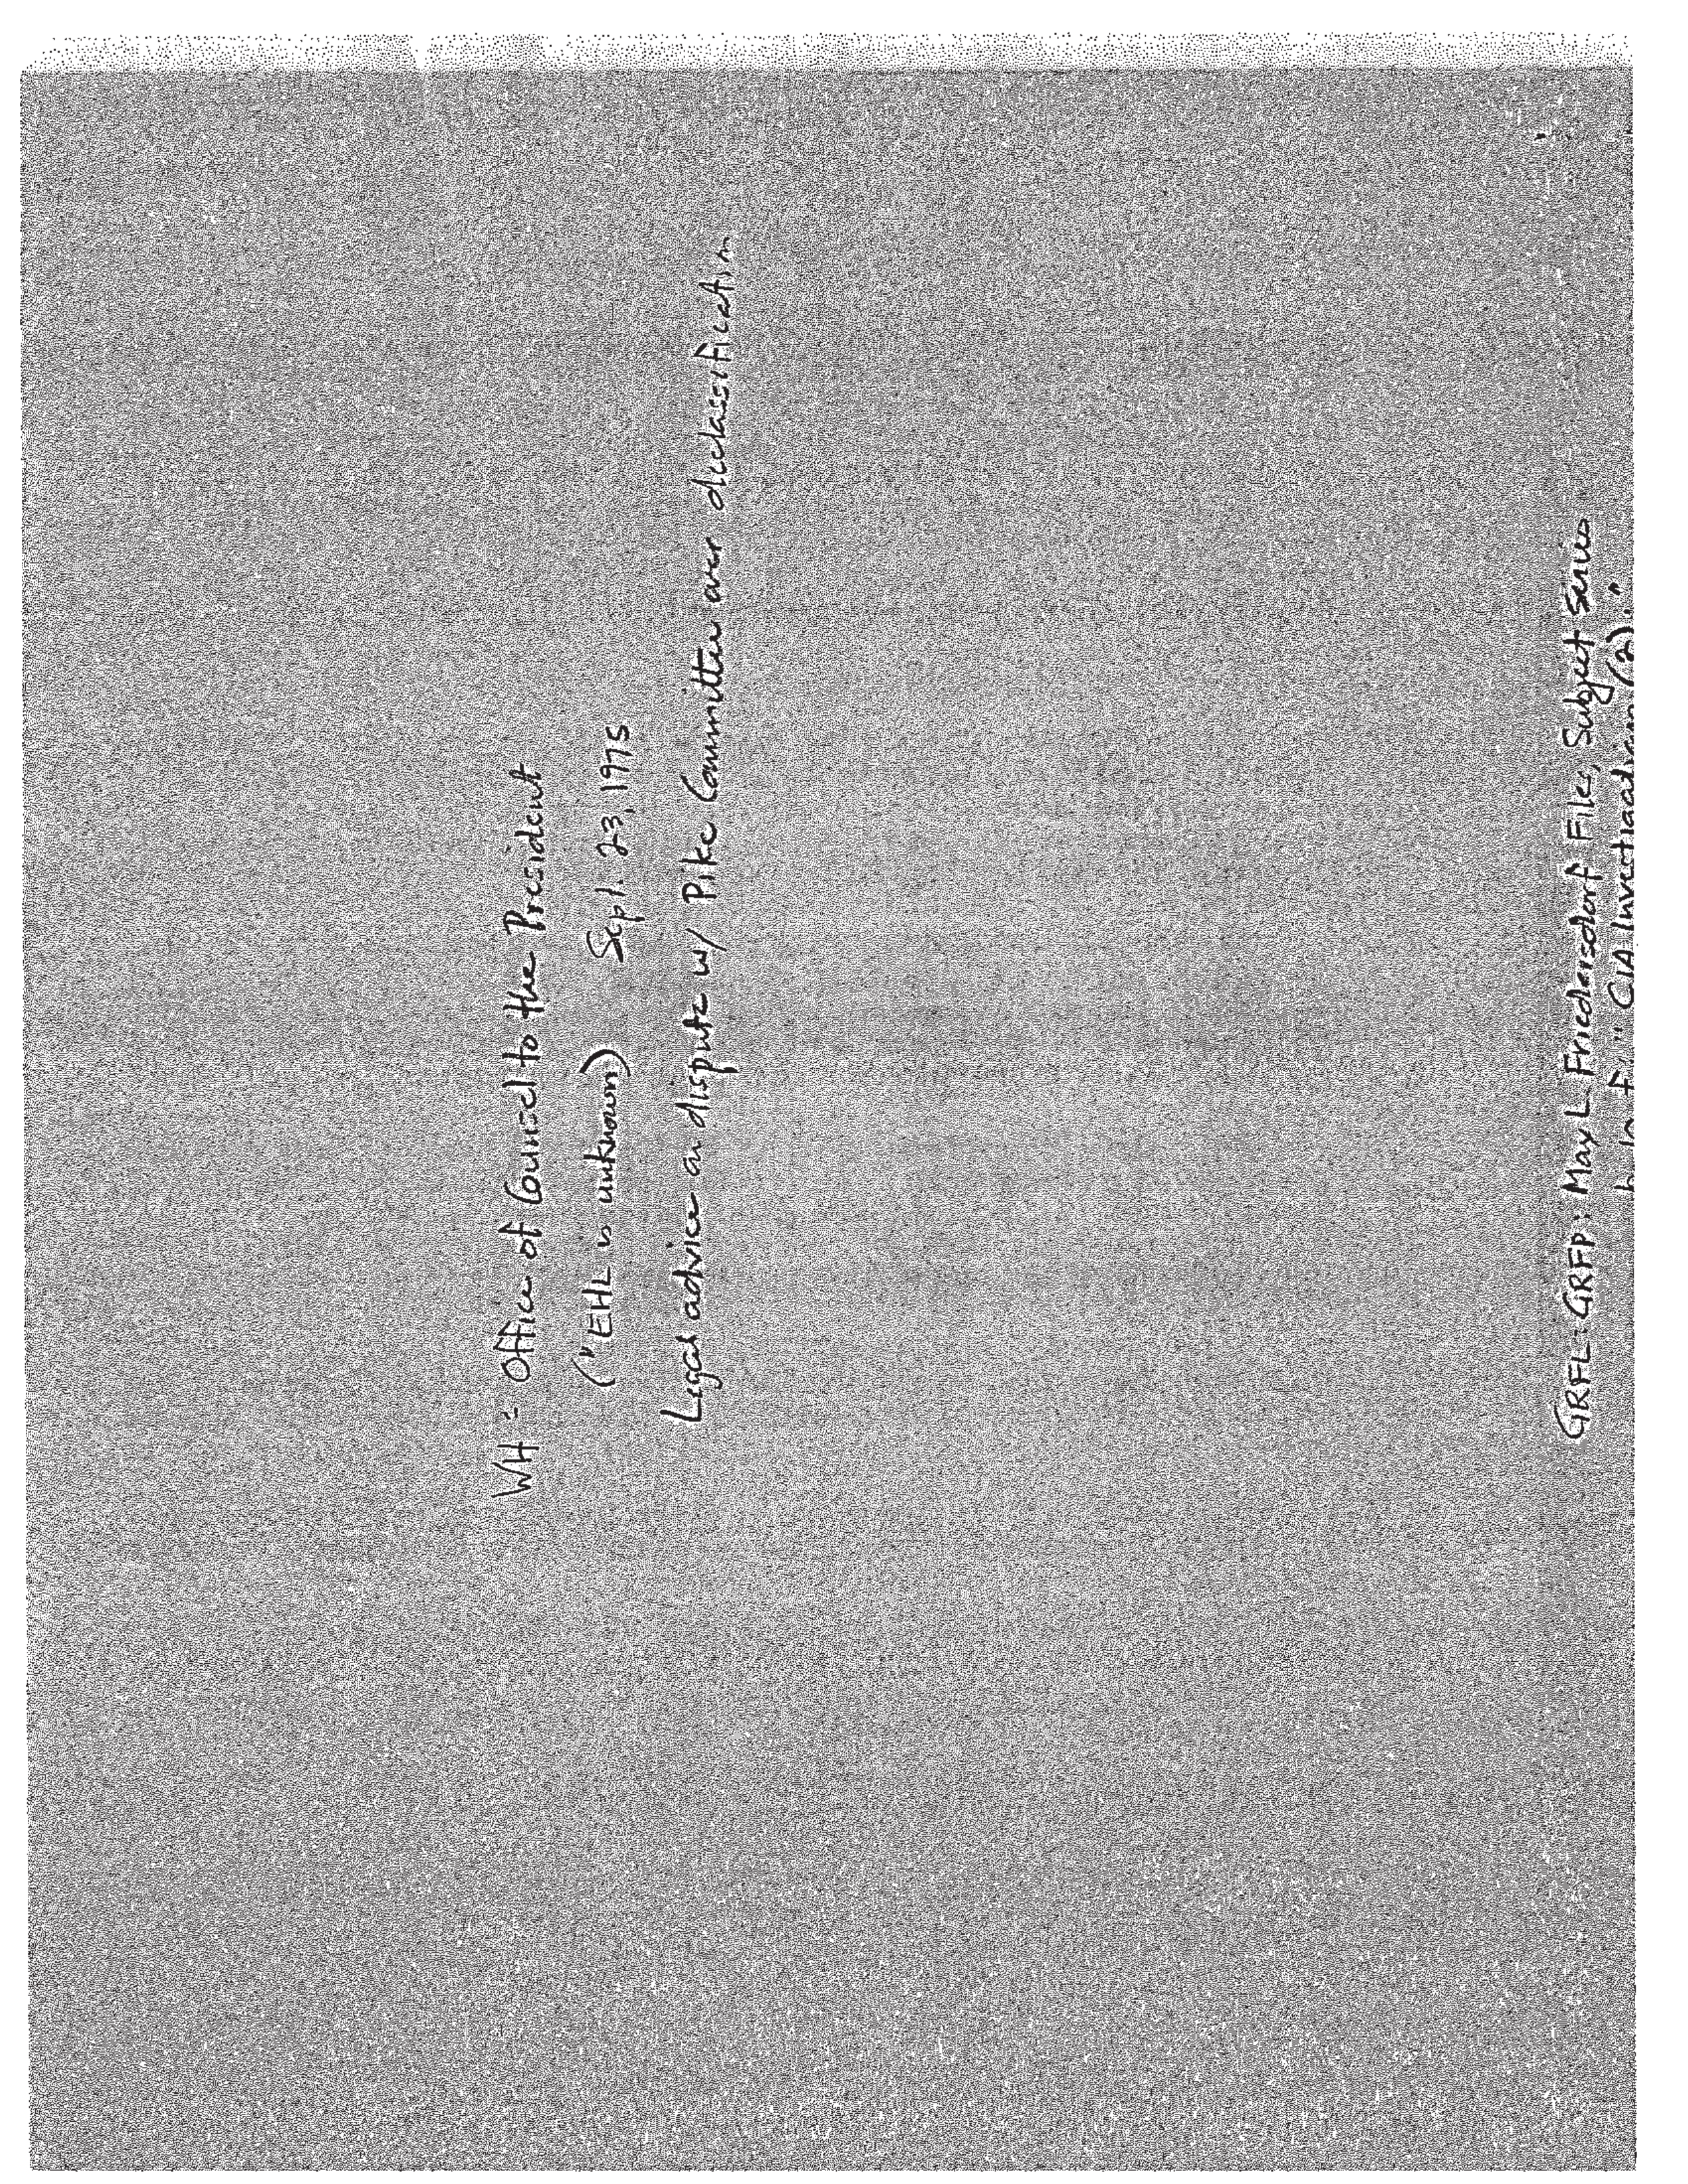 WH = Office of Counsel to the President
("EHL is unknown) Sept. 23, 1975
Legal advice on dispute w/ Pike Committee over declassification
GRFL: GRFP: Max L Friedersdorf Files, Subject Series
"CIA Investigations (2)."